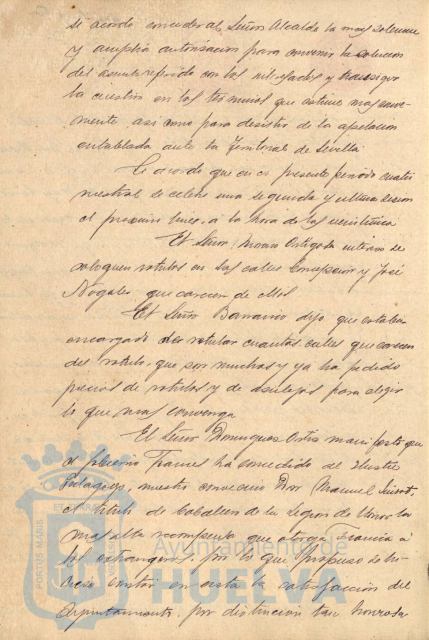 se acordó conceder al Señor Alcalde la mas solemne
y amplia autorizacion para convenir la solucion
del asunto referido con los interesados y transigir
la cuestión en los terminos que estime mas conve-
niente asi como para desistir de la apelacion
entablada ante la Territorial de Sevilla
Se acordo que en el presente periodo cuatri
mestral se celebre una segunda y ultima sesion
el proximo lunes, a la hora de las veintiuna
El Señor Moron Ortega intereso se
coloquen rotulos en las calles Concepcion y José
Nogales que carecen de ellos
El Señor Barranco dijo que estaba
encargado de rotular cuantas calles que carecen
del rotulo, que son muchas y ya ha pedido
precios de rotulos y de azulejos para elegir
lo que mas convenga
El Señor Dominguez Ortiz manifesto que
el gobierno Frances ha concedido al Ilustre
nuestro convecino Don Manuel Siurot,
el titulo de Caballero de la Legion de Honor la
mas alta recompensa que otorga Francia a
los extranjeros, por lo que propuso se hi-
ciese constar en acta la satisfaccion del
Ayuntamiento, por distincion tan honrosa
PORTUS MARIS
Ayuntamiento de
HUELVA